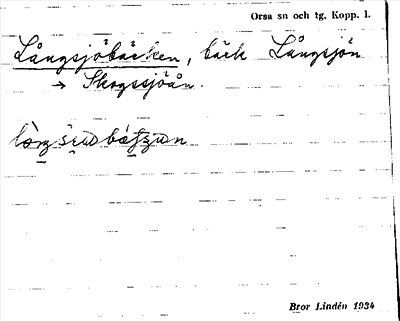 Orsa sn och tg. Kopp. l.
Långsjöbäcken, bäck Långsjön
→ Skogssjöån.
Bror Lindén 1934